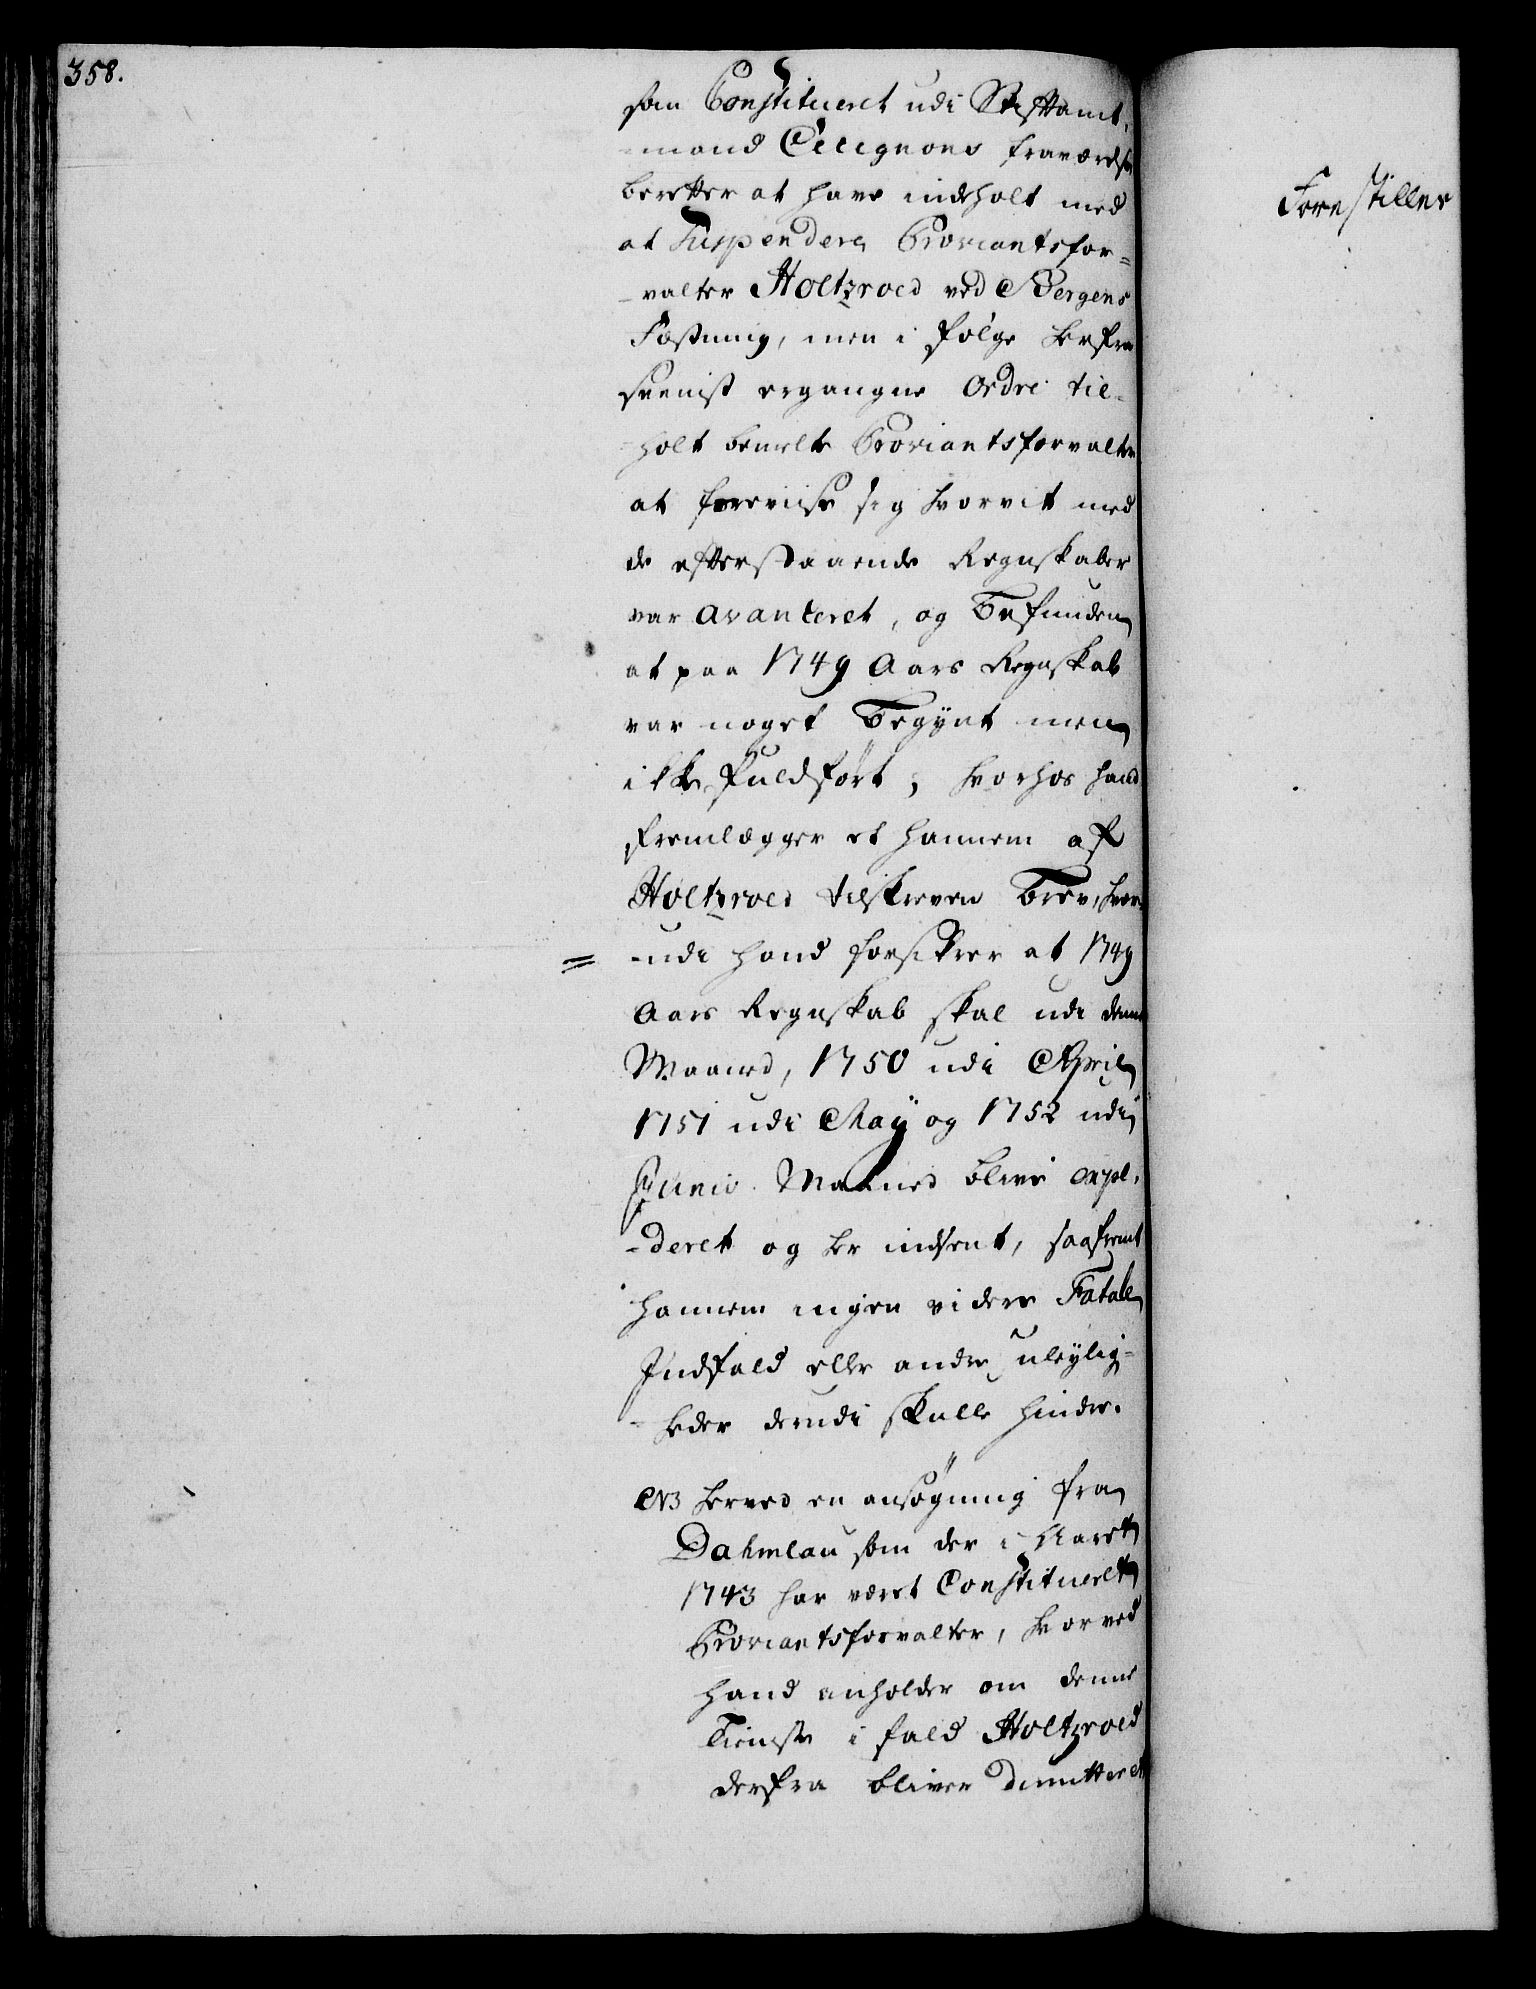 358.
som Constitueret udi Stiftamt-
-mand Cicignons fraværelse
beretter at have indholt med
at Suspendere Proviantsfor-
-valter Holtzroed ved Bergens
Fæstning, men i følge herfra
seenist ergangne Ordre til-
holt bemelte Proviantsforvalter
at foreviise sig hvorvit med
de efterstaaende Regnskaber
var avanceret, og befunden
at paa 1749 Aars Regnskab
var noget begynt men
ikke fuldført, hvorhos hand
fremlægger et hannem af
Holtzroed tilskreven brev, hvor-
-udi hand forsikrer at 1749
Aars Regnskab skal udi denne
Maaned, 1750 udi April
1751 udi May og 1752 udi
Junio Maaned blive expe-
-deret og her indsent, saafremt
hannem ingen videre Fatale
Indfald eller andre uleylig-
-heder derudi skulle hindre.
NB herved en ansøgning fra
Dahmlau som der i Aaret
1743 har været Constitueret
Proviantsforvalter, hvorved
hand anholder om denne
Tieniste i fald Holtzroed
derfra bliver dimitteret
Forestilles